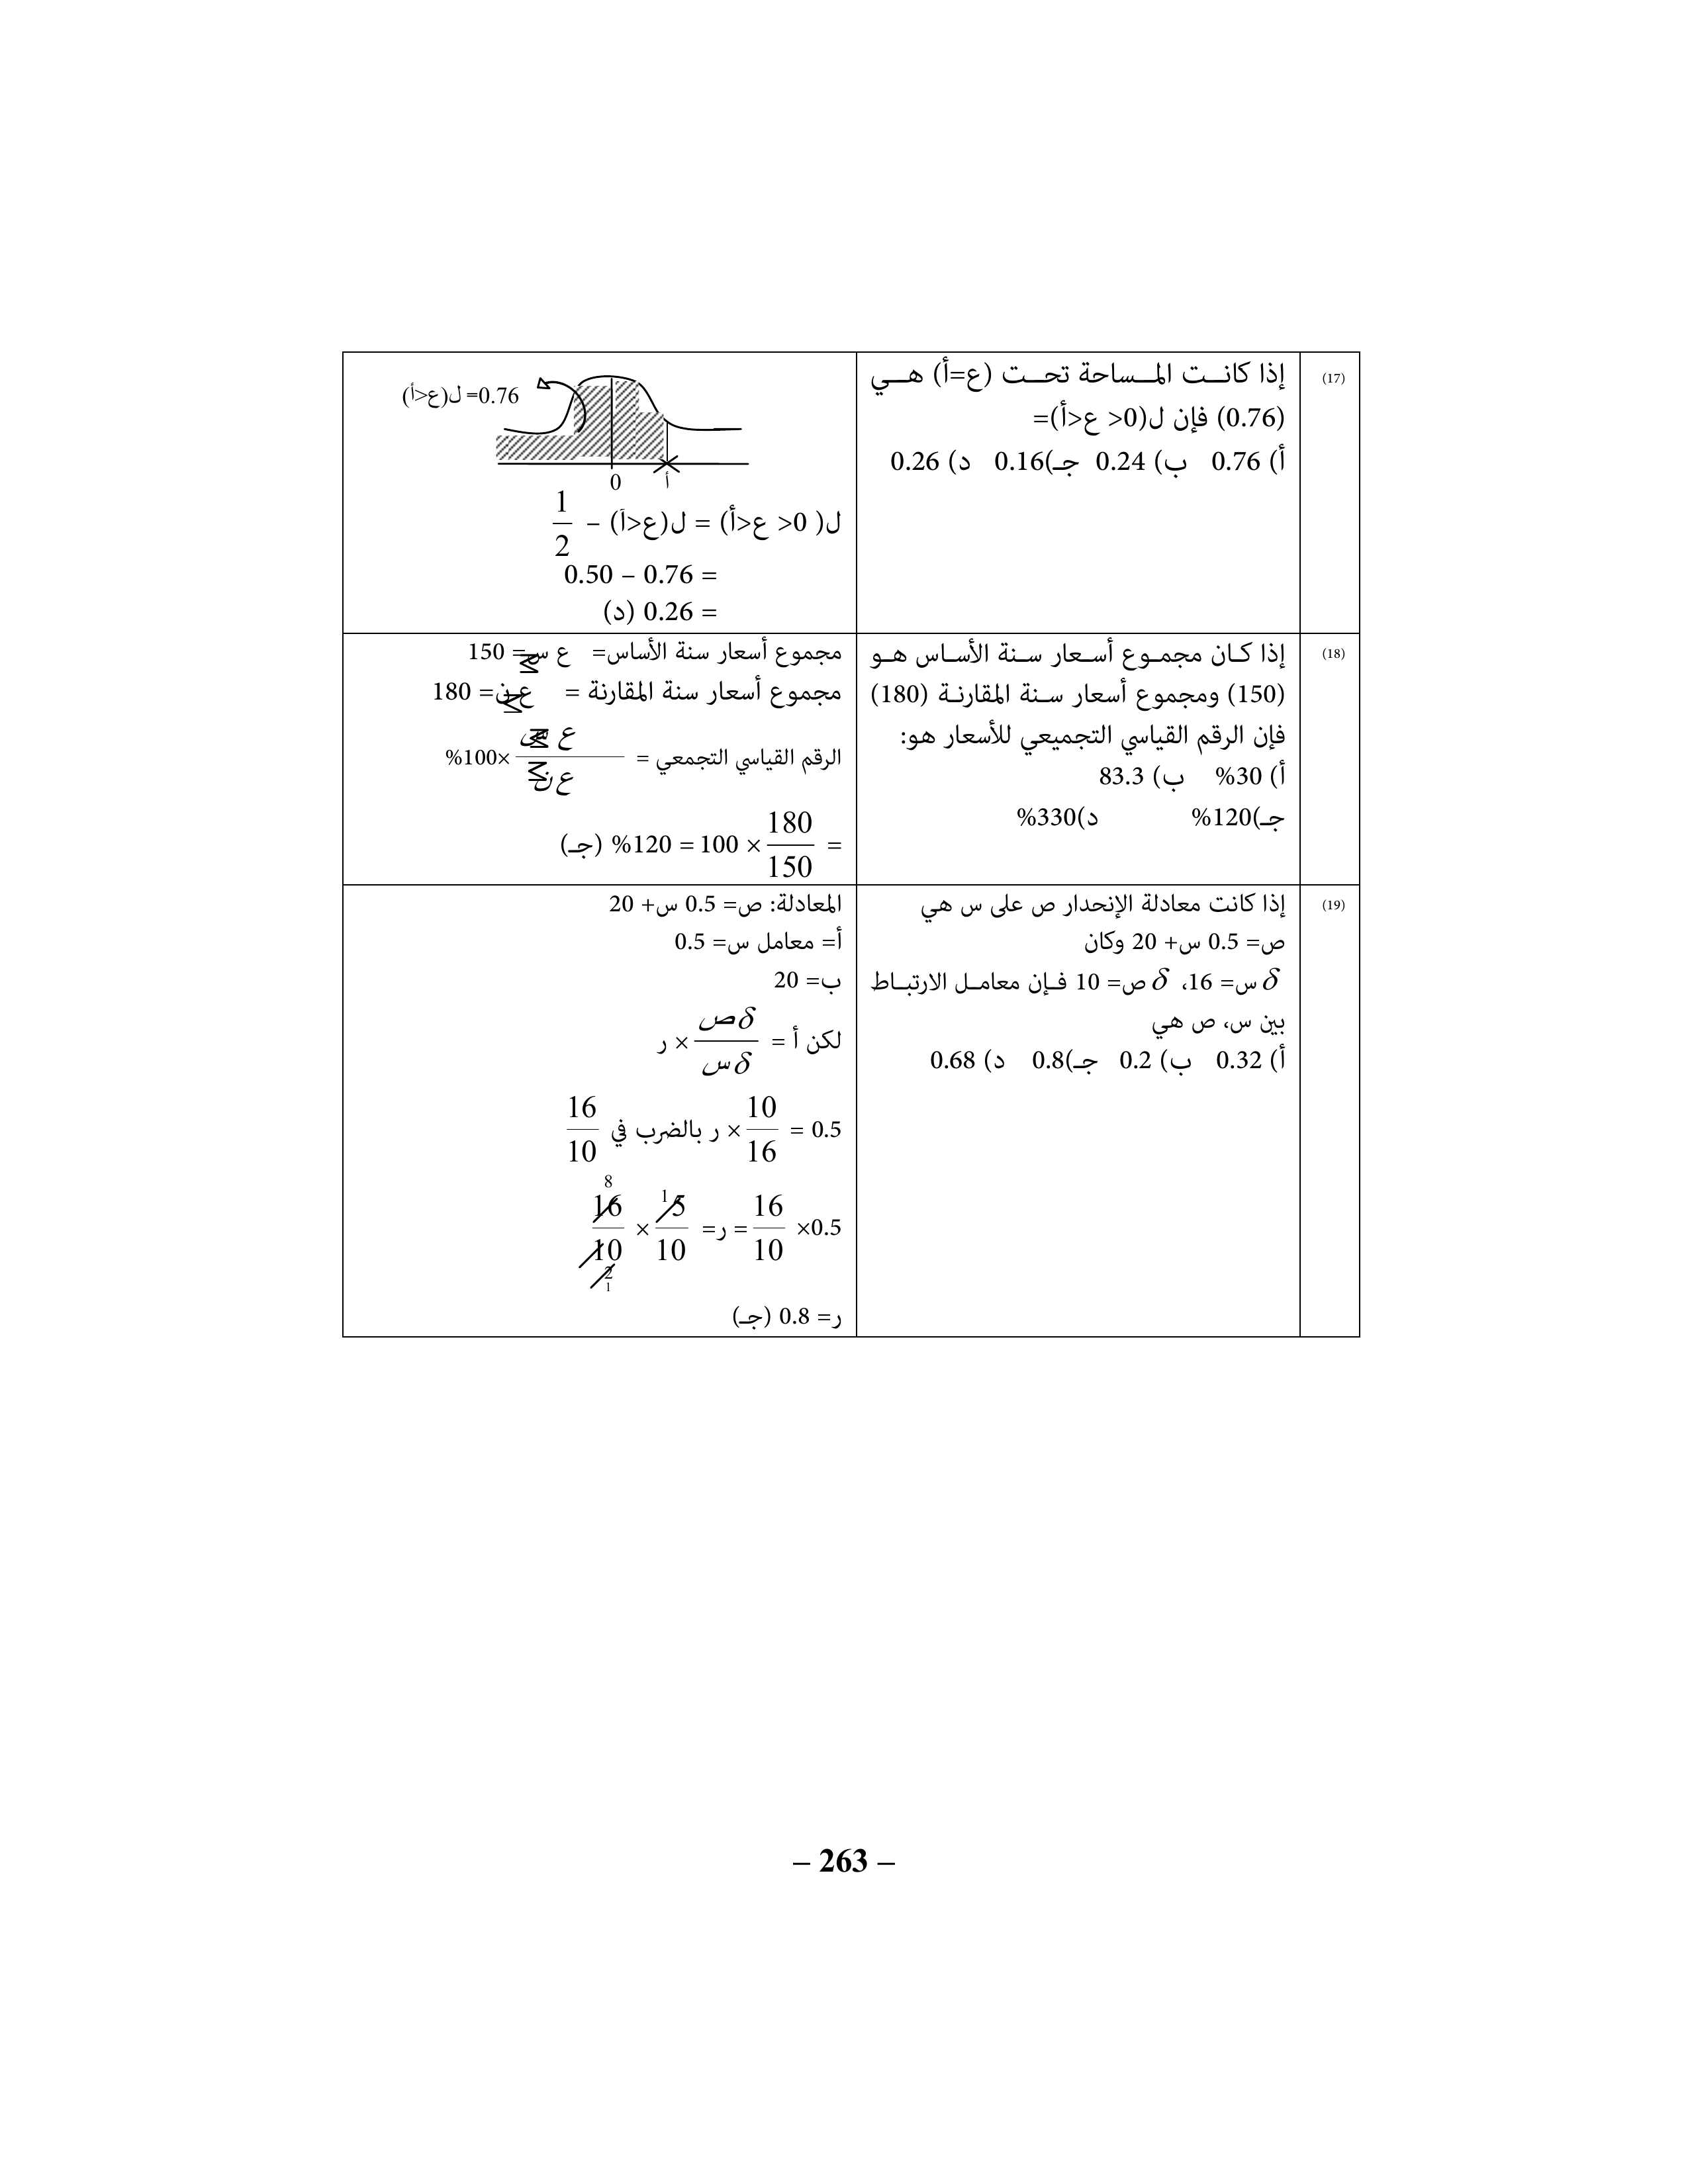 (17)
إذا كانت المساحة تحت (ع=أ) هي
(0.76) فإن ل(0< ع<أ)=
أ) 0.76 ب) 0.24 جـ)0.16 د) 0.26
0.76= ل(ع<أ)
0 أ
ل( 0< ع<أ) = ل(ع<أ) – 1/2
= 0.76 – 0.50
= 0.26 (د)
(18)
إذا كان مجموع أسعار سنة الأساس هو
(150) ومجموع أسعار سنة المقارنة (180)
فإن الرقم القياسي التجميعي للأسعار هو:
أ) 30% ب) 83.3
جـ)120% د)330%
مجموع أسعار سنة الأساس= ∑ ع س= 150
مجموع أسعار سنة المقارنة = ∑ ع ن= 180
الرقم القياسي التجمعي = ∑ ع س / ∑ ع ن ×100%
= 180/150 × 100 = 120% (جـ)
(19)
إذا كانت معادلة الإنحدار ص على س هي
ص= 0.5 س+ 20 وكان
δ س= 16، δ ص= 10 فإن معامل الارتباط
بين س، ص هي
أ) 0.32 ب) 0.2 جـ)0.8 د) 0.68
المعادلة: ص= 0.5 س+ 20
أ= معامل س= 0.5
ب= 20
لكن أ = δ ص / δ س × ر
0.5 = 10/16 × ر بالضرب في 16/10
0.5× 16/10 = ر= 5/10 × 16/10
1 8
2
1
ر= 0.8 (جـ)
– 263 –